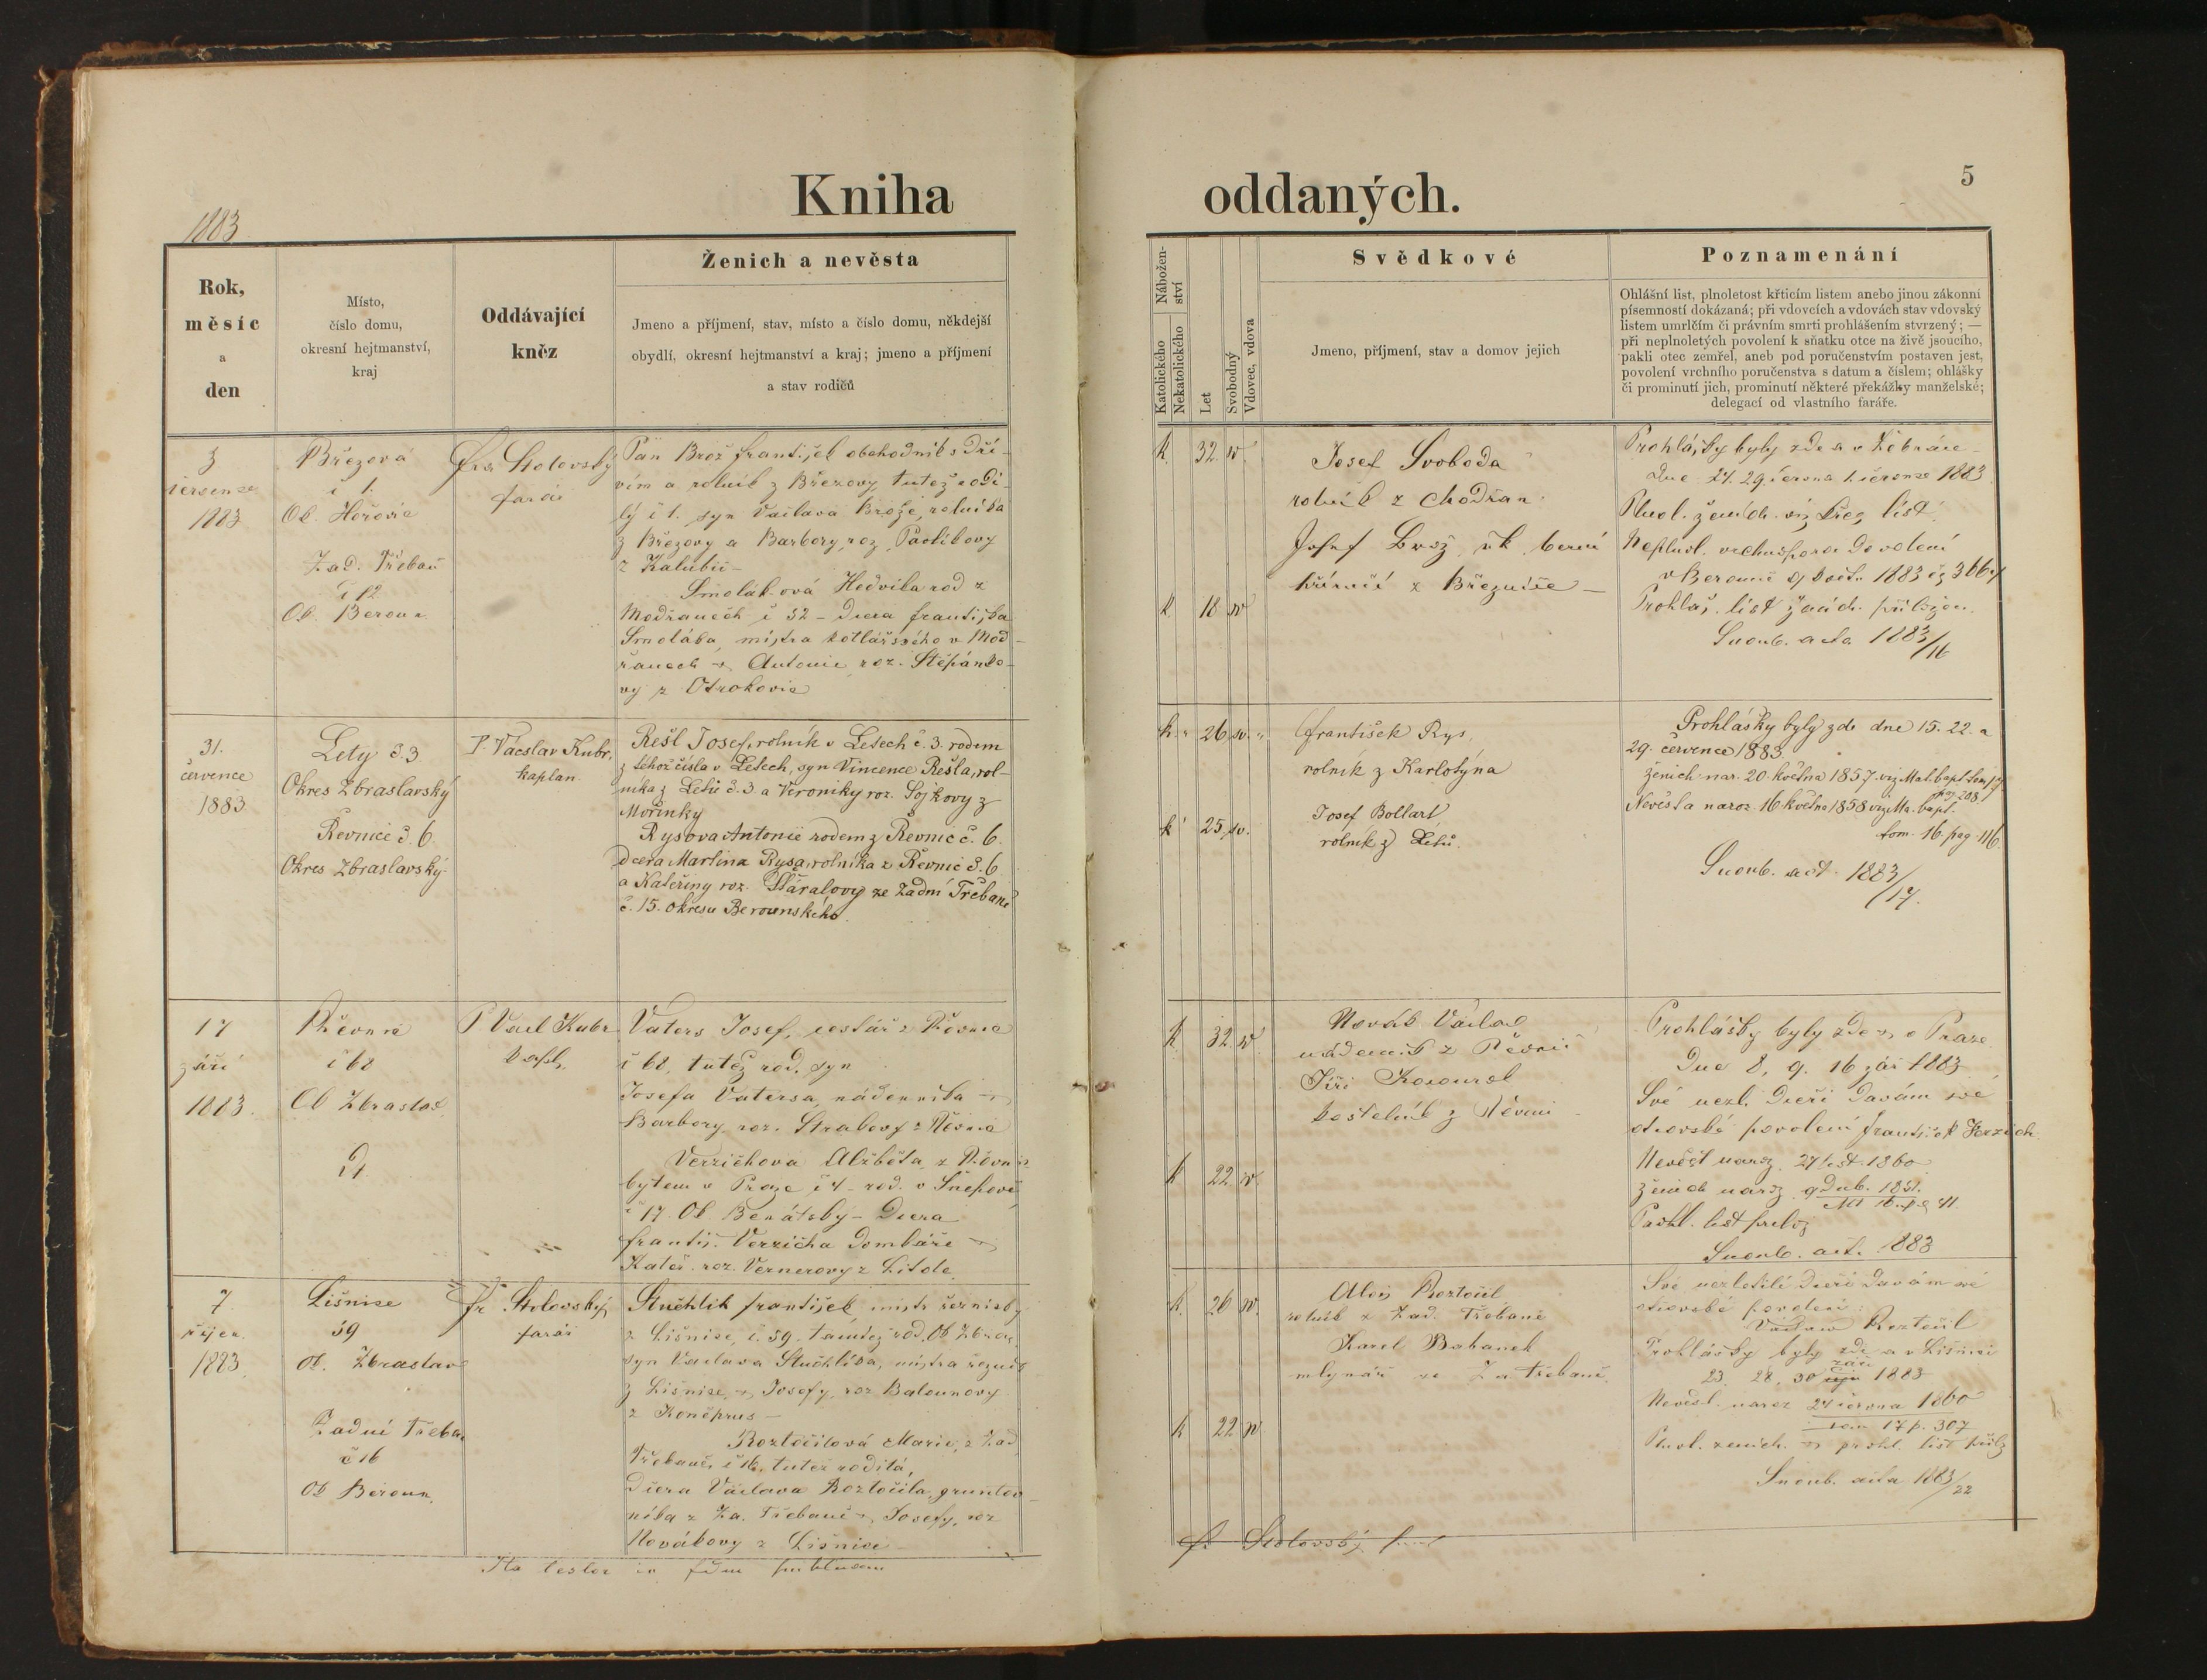 Kniha
oddaných.
5
1883
Rok,
měsíc
a
den
Místo,
číslo domu,
okresní hejtmanství,
kraj
Oddávající
kněz
Ženich a nevěsta
Jmeno a příjmení, stav, místo a číslo domu, někdejší
obydlí, okresní hejtmanství a kraj; jmeno a příjmení
a stav rodičů
Nábožen-
ství
Katolického
Nekatolického
Let
Svobodný
Vdovec, vdova
Svědkové
Jmeno, příjmení, stav a domov jejich
Poznamenání
Ohlášní list, plnoletost křticím listem anebo jinou zákonní
písemností dokázaná; při vdovcích a vdovách stav vdovský
listem umrlčím či právním smrti prohlášením stvrzený; —
při neplnoletých povolení k sňatku otce na živě jsoucího,
pakli otec zemřel, aneb pod poručenstvím postaven jest,
povolení vrchního poručenstva s datum a číslem; ohlášky
či prominutí jich, prominutí některé překážky manželské;
delegací od vlastního faráře.
3
července
1883
Březová
č 1.
Ok. Hořovic
Zad. Třebaň
č 12
Ok. Beroun
Stolovský
farář
Pan Brož František obchodník s dří-
vím a rolník z Březovy, tutéž rodi-
lý č 1. syn Václava Brože, rolníka
z Březovy a Barbory, roz.
Smolák-ová Hedvika rod z
Modřanech č 32 - dcera Františka
Smoláka, mistra kotlářského v Mod-
řanech Antonie roz. Štěpánko-
vy z Otrokovic
K 32 sv
K 18 sv
Josef Svoboda
rolník z Modřan
Josef Brož
Prohlášky byly zde a v Žebráce
dne 24. 29 června 1 července 1883
Plnol. ženich. viz křes. list.
v Berouně 1883
Prohláš. list
Snoub. acta 1883/16
31.
července
1883
Lety č.3
Okres Zbraslavský
Řevnice č. 6
Okres Zbraslavský
P. Václav Kubr,
kaplan
Rešl Josef, rolník v Letech č. 3. rodem
z téhož čísla v Letech, syn Vincence Rešla, rol-
níka z Letů č. 3 a Veroniky roz. Sojkovy z
Mořinky
Rysova Antonie rodem z Řevnic č. 6.
dcera Martina Rysa, rolníka z Řevnic č. 6
a Kateřiny roz. Šťáralovy ze Zadní Třebaně
č. 15. okresu Berounského.
k. 26 sv.
k 25 sv.
František Rys,
rolník z Karlotýna
Josef Bollart
rolník z Letů.
Prohlášky byly zde dne 15. 22. a
29. července 1883
ženich nar. 20. května 1857. viz Mat. bapt. tom 17
pag. 208.
Nevěsta naroz. 16. května 1858 viz Ma. bapt.
tom. 16. pag. 116
Snoub. act. 1883/17.
17
září
1883.
Řevnic
č 68
Ok Zbraslav
P Václ Kubr
kapl.
Vaters Josef, cestář z Řevnic
č 68, tutéž rod. syn
Josefa Vatersa, nádenníka
Barbory roz. Strakovy z Řevnic
Verzichova Alžběta z Řevnic
bytem v Praze č 4 - rod. v
č 17. Ok Benátsky - dcera
Františ. Verzicha
Kateř. roz. Vernerovy z Litde
K 32 sv
K 22 sv
Novák Václav
nádenník z Řevnic
Jiří Kocourek
kostelník z Řevnic
Prohlášky byly zde v Praze
Dne 8, 9. 16 září 1883
Své nezl. dceři davám své
otcovské povolení František Verzich
Nevěst naroz. 27 list. 1860
ženich naroz. 9 dub. 1851.
Snoub. act. 1883
7.
říjen
1883.
Lišnice
59
ok. Zbraslav
Zadní Třebaň
č 16
Ok Beroun
Fr. Stolovský
farář
Stuchlík František, mistr řeznický
z Lišnice, č. 59, tamtéž rod. Ok Zbra.
syn Václava Stuchlíka, mistra řeznic.
z Lišnice, Josefy, roz Balounovy
z Koněprus -
Roztočilová Marie, z Zad
Třebaně, č 16, tutéž rodilá,
Dcera Václava Roztočila, gruntov-
níka z Za. Třebaně Josefy, roz
Novákovy z Lišnice
K. 26 sv.
K 22 sv
Alois Roztočil
rolník z Zad. Třebaně
Karel Babanek
mlynář ze Za Třebaně.
Své nezletilé dceři davám své
otcovské povolení:
Václav Roztočil
Prohlášky byly zde a v Lišnici
září
23. 28. 30 1883
Nevěst. naroz 24 června 1860
tom 17 p. 307
Plnol. ženich. prohl. list přilž
Snoub. acta 1883/22
Fr Stolovský